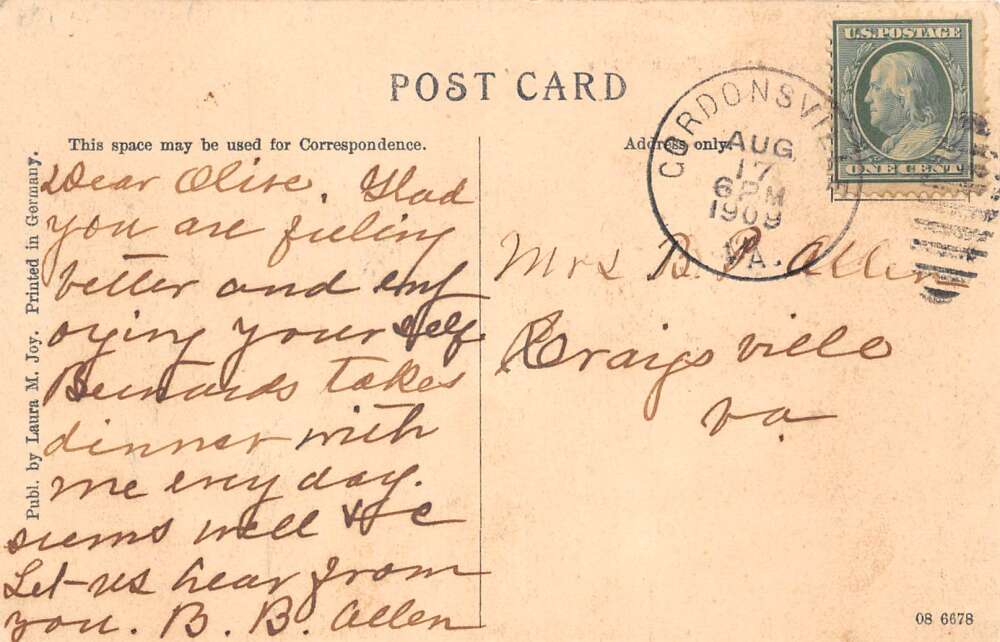 POST CARD
This space may be used for Correspondence.
Address only.
Publ. by Laura M. Joy. Printed in Germany.
U.S. POSTAGE
ONE CENT
GORDONSVILLE
AUG
17
6 PM
1909
VA.
Dear Olive. Glad
you are feeling
better and enj
oying your self.
takes
dinner with
me evry day.
seems well &c
Let us hear from
you. B. B. Allen
Mrs B. Allen
Craigsville
va
08 6678